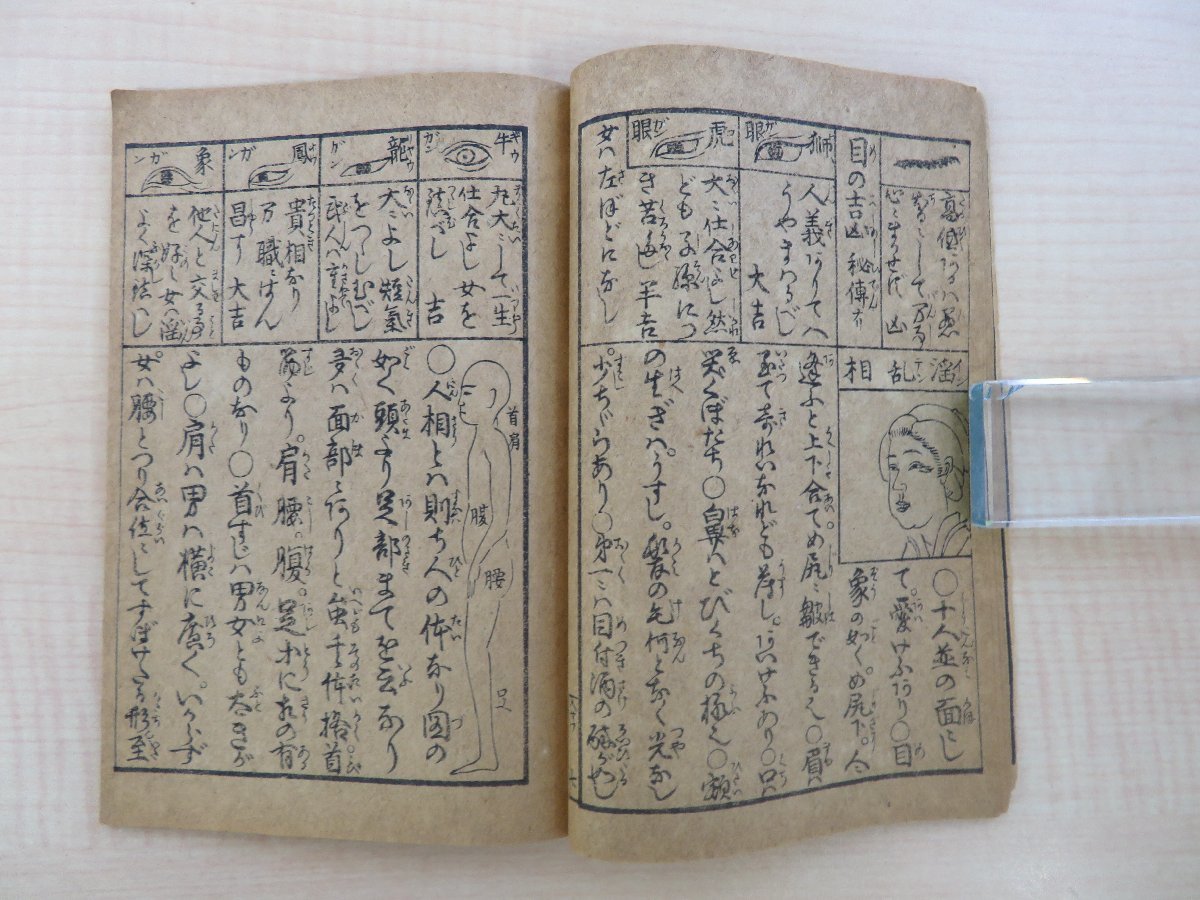 高低あれバ愚
にして万事
心にまかせず 凶
目の吉凶 秘傳
獅
眼
人義ありてへ
うやまはるべし
大吉
虎
眼
大に仕合よし然
ども子孫につ
き苦あり 半吉
女ハ左ほどになし
淫乱相
○十人並の面にし
て。愛けふあり○目
象の如く。め尻下。今
逢ふと上下合てめ尻に皺できる也○眉ハ
至て奇れいなれども薄し。あいけふあり○口ハ
笑くぼたち○鼻ハとびくちの極也○額
の生ぎハ。うすし。髪の毛何となく光なし
少ちゞらあり○第一ハ目付酒の酔がほ
牛
ガン
丸大にして一生
仕合よし女を
べし 吉
龍
ガン
大によし短気
をつゝしむべし
武人ハ重よし
鳳
ガン
貴相なり
万職にはん
昌す 大吉
象
ガン
他人と交る事
を好し女ハ淫
よく深べし
首肩
腹
腰
足
○人相とハ則ち人の体なり図の
如く頭より足部まてを云なり
多ハ面部にありと雖も体格首
筋より。肩腰。腹。足ホに相の有
ものなり○首すじハ男女とも太きが
よし○肩ハ男ハ横に広く。いからず
女ハ腰とつり合位にしてすぼけたる形至